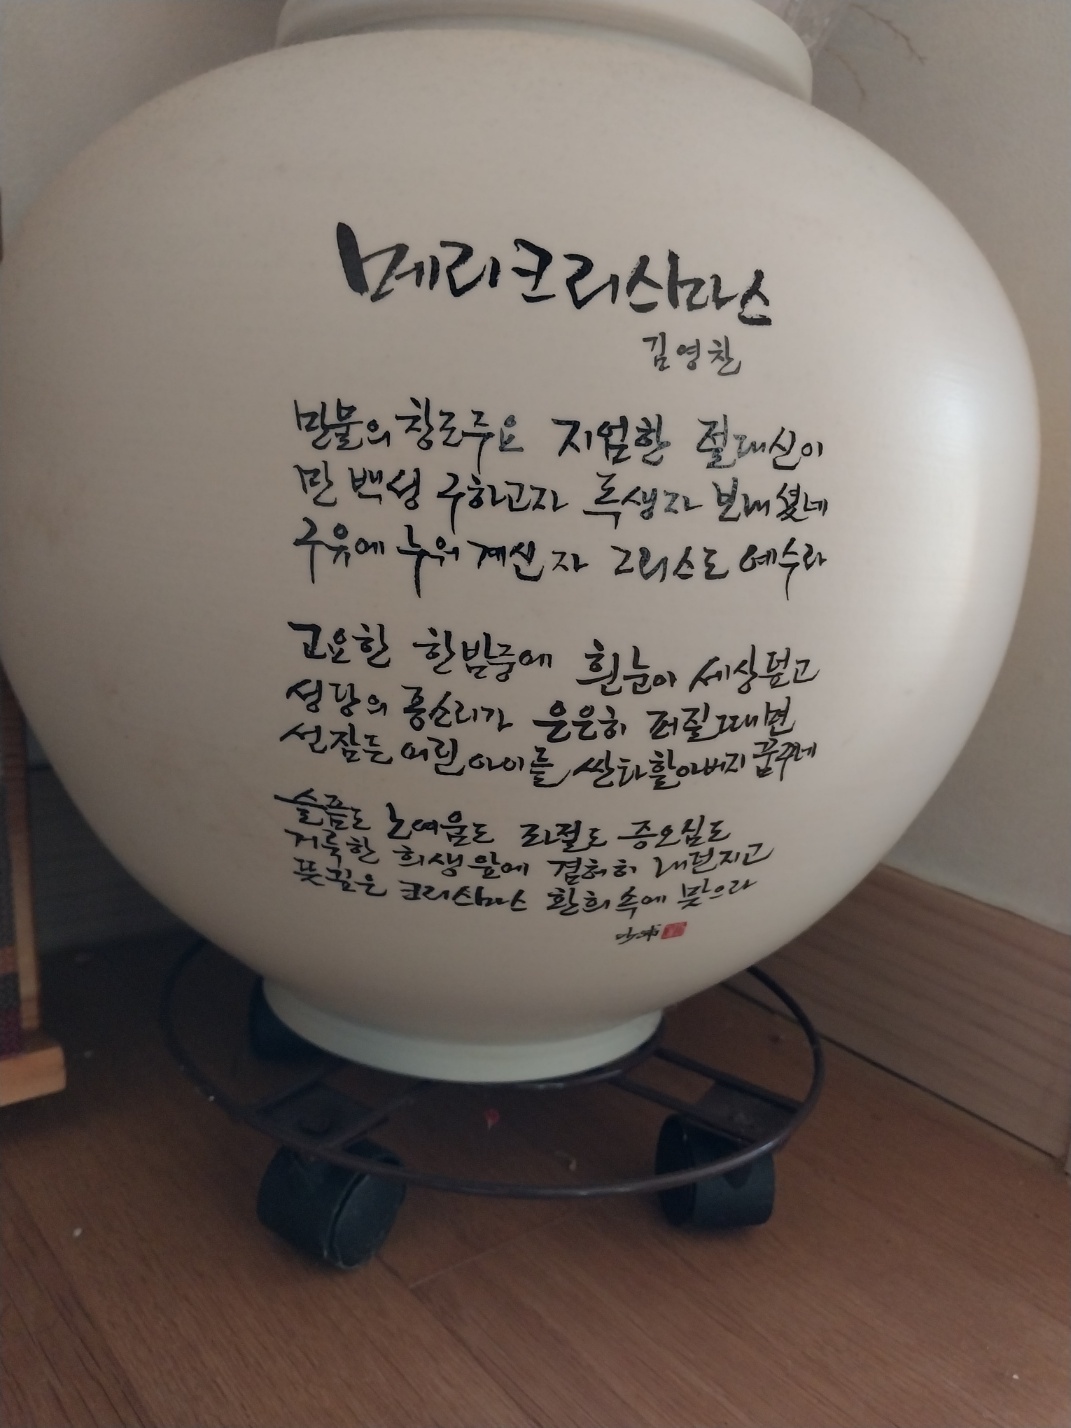 메리크리스마스
김영찬
만물의 창조주요 지엄한 절대신이
만 백성 구하고자 독생자 보내셨네
구유에 누워 계신 자 그리스도 예수라
고요한 한밤중에 흰눈이 세상덮고
성당의 종소리가 은은히 퍼질때면
선잠든 어린아이들 싼타할아버지 꿈꾸네
슬픔도 노여움도 좌절도 증오심도
거룩한 희생앞에 겸허히 내던지고
뜻깊은 크리스마스 환희속에 맞으라